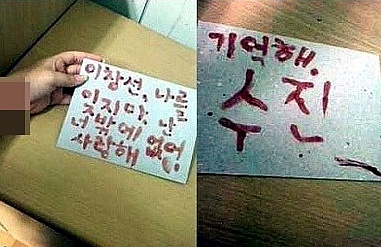 이창선, 나를
잊지마, 난
너밖에 없어.
사랑해
기억해.
수진